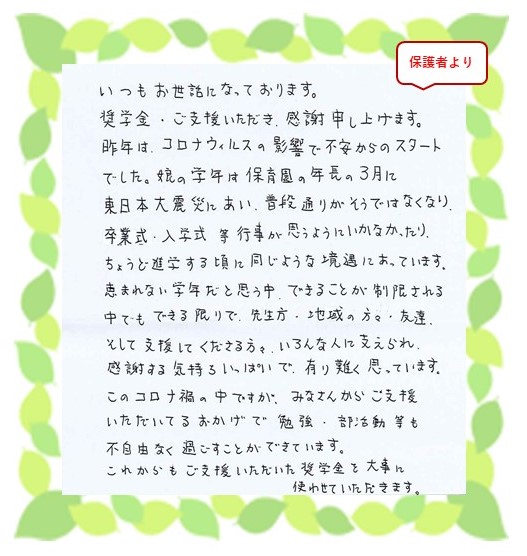 保護者より
いつもお世話になっております。
奨学金・ご支援いただき、感謝申し上げます。
昨年は、コロナウィルスの影響で不安からのスタート
でした。娘の学年は保育園の年長の3月に
東日本大震災にあい、普段通りがそうではなくなり、
卒業式・入学式 等 行事が思うようにいかなかったり、
ちょうど進学する頃に同じような境遇にあっています。
恵まれない学年だと思う中、できることが制限される
中でもできる限りで、先生方・地域の方々・友達、
そして支援してくださる方々、いろんな人に支えられ、
感謝する気持ちいっぱいで、有り難く思っています。
このコロナ禍の中ですが、みなさんからご支援
いただいてるおかげで勉強・部活動等も
不自由なく過ごすことができています。
これからもご支援いただいた奨学金を大事に
使わせていただきます。